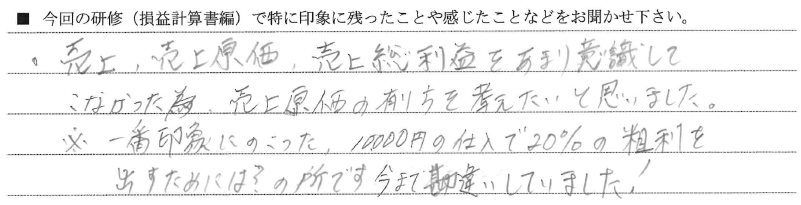 ■ 今回の研修(損益計算書編)で特に印象に残ったことや感じたことなどをお聞かせ下さい。
・売上、売上原価、売上総利益をあまり意識して
こなかった為、売上原価の有り方を考えたいと思いました。
※ 一番印象にのこった、10000円の仕入で20%の粗利を
出すためには?の所です今まで勘違いしていました!